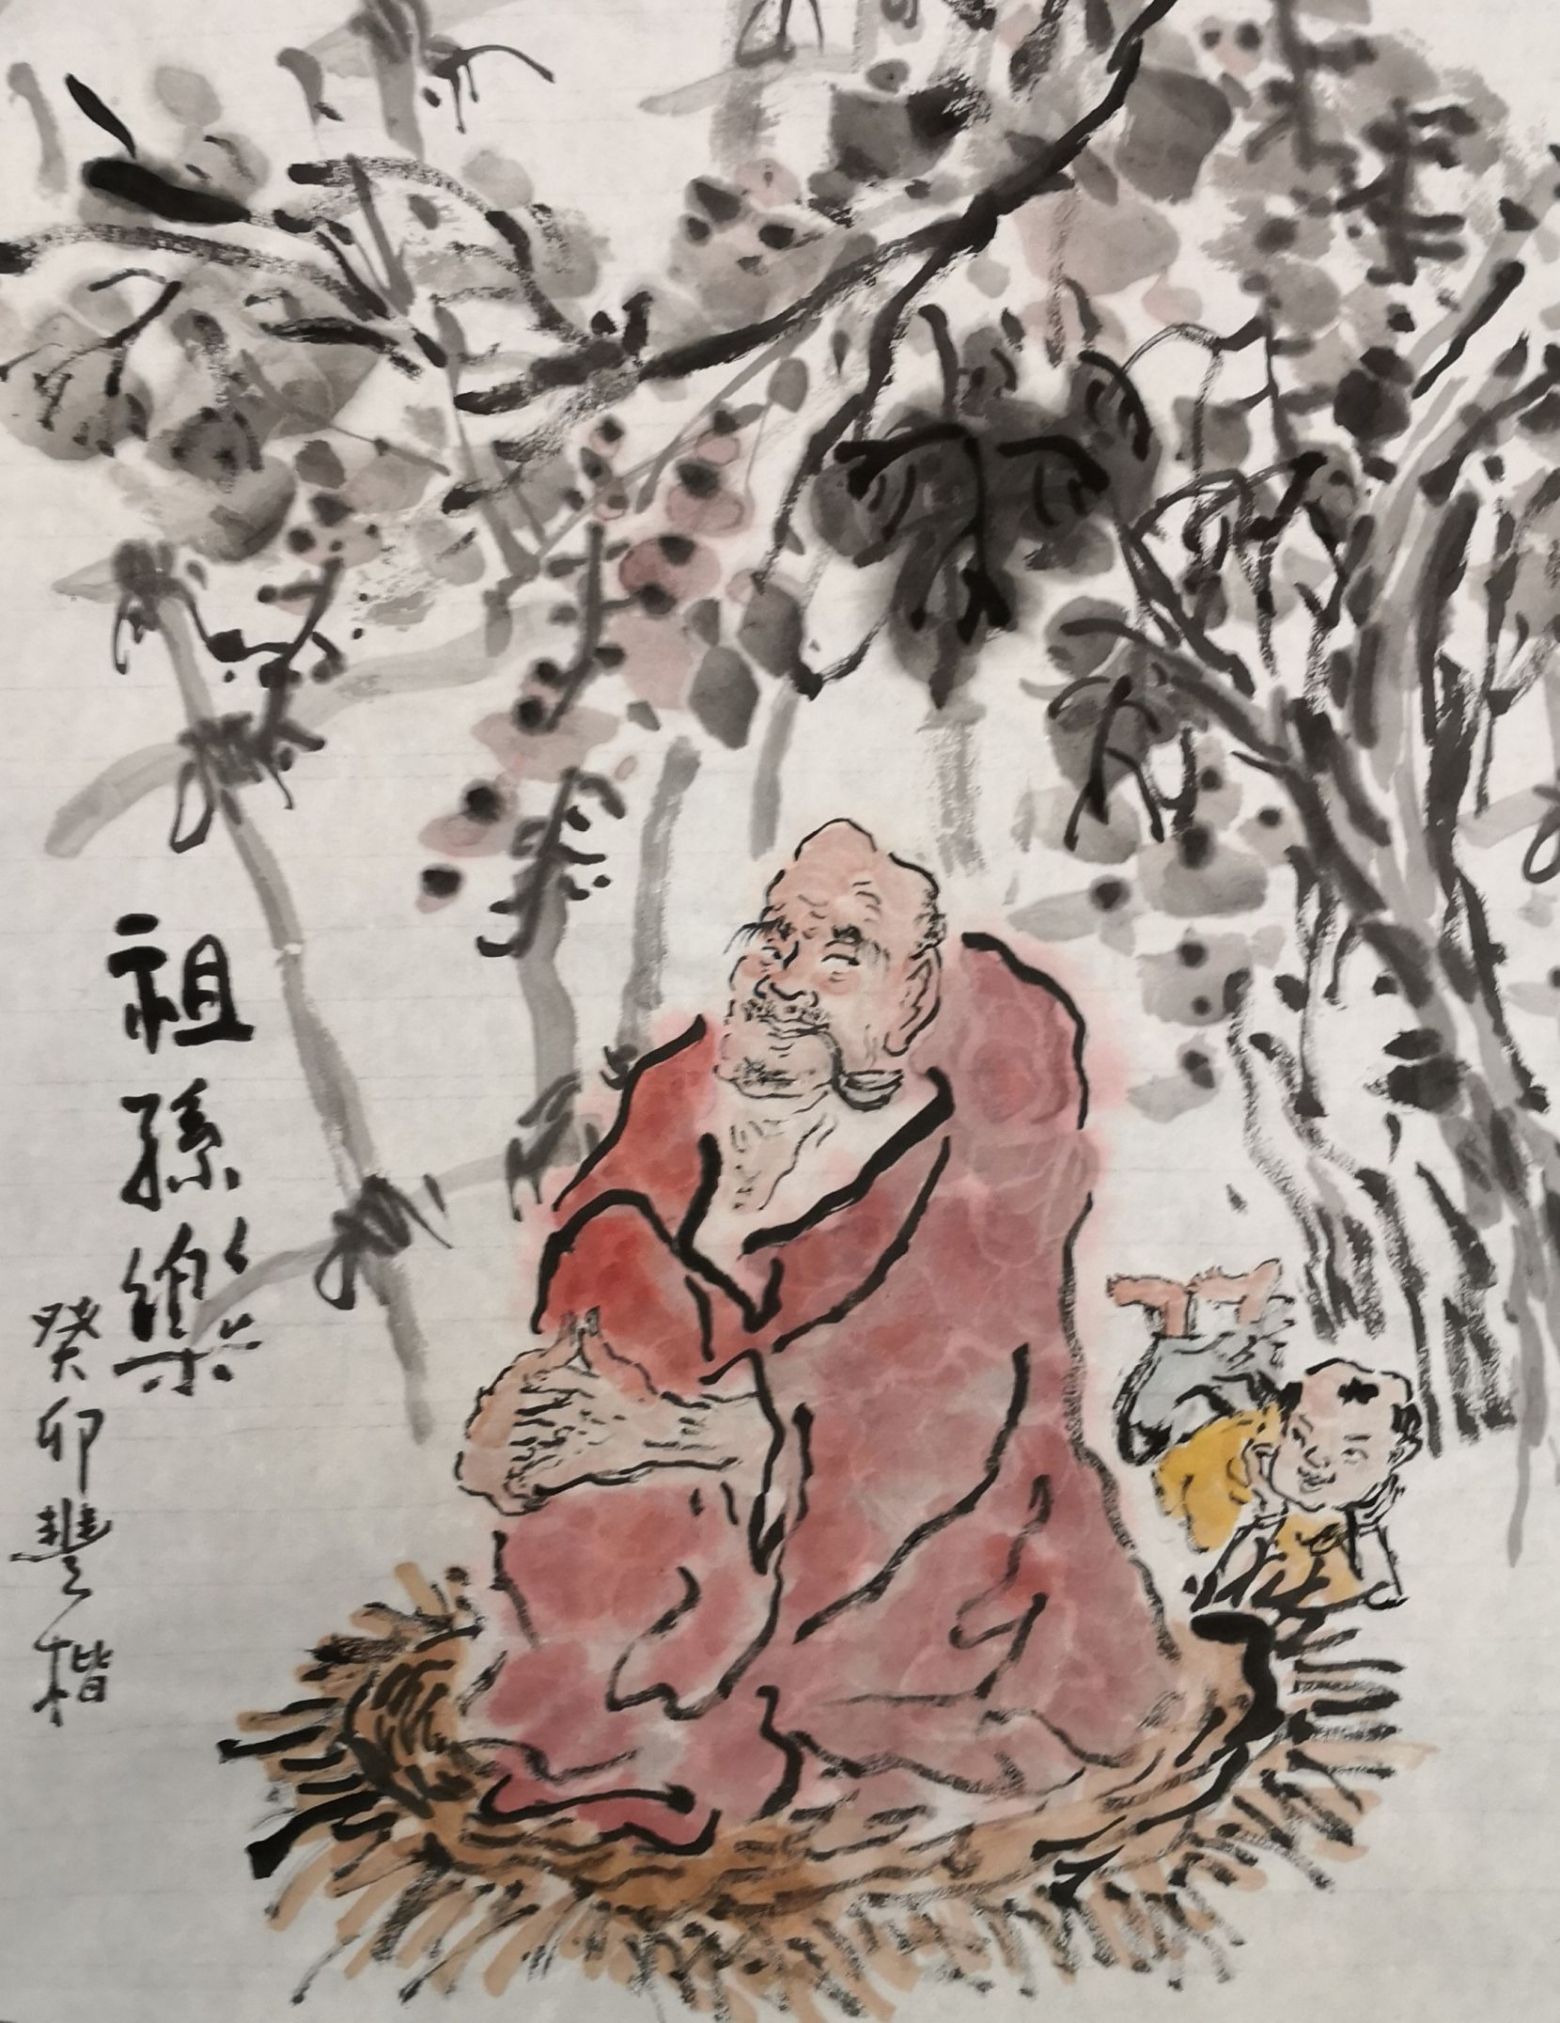 祖孫樂
癸卯豐楷